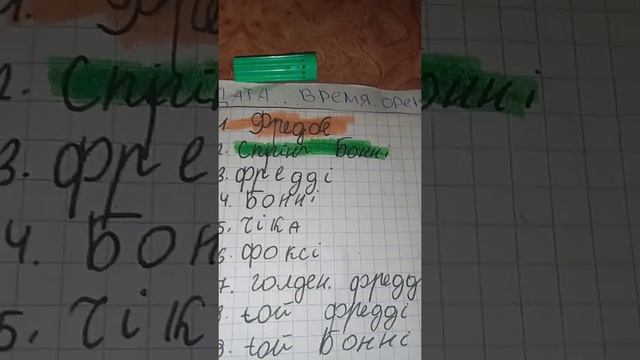 ДАТА.. ВРЕМЯ. ОРЕН
1. Фредбе
2. Спрінг Бонні
3. фредді
4. Бонні
5. Чіка
6 фоксі
7. голден. фредд
8. той фредді
9. той Бонні